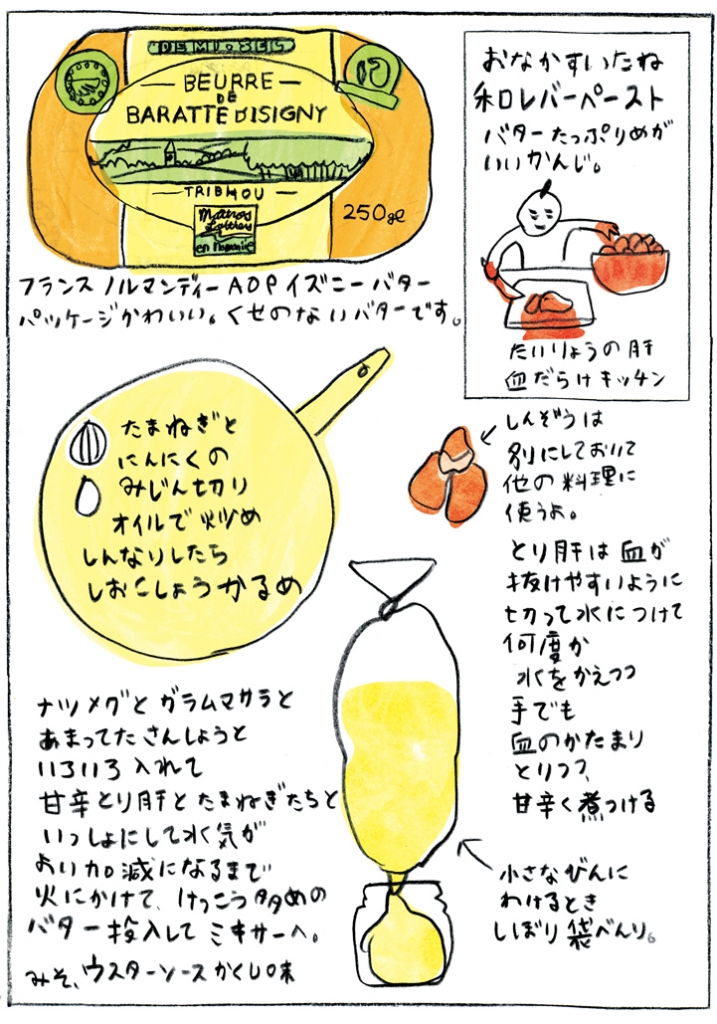 DEMI-SEL
BEURRE
DE
BARATTE D'ISIGNY
TRIBEHOU
Maîtres
Laitiers
en Normandie
250ge
フランス ノルマンディー AOP イズニーバター
パッケージかわいい。くせのないバターです。
おなかすいたね
和レバーペースト
バターたっぷりめが
いいかんじ。
たいりょうの肝
血だらけキッチン
たまねぎと
にんにくの
みじん切り
オイルで炒め
しんなりしたら
しおこしょうかるめ
しんぞうは
別にしておいて
他の料理に
使うよ。
とり肝は血が
抜けやすいように
切って水につけて
何度か
水をかえつつ
手でも
血のかたまり
とりつつ、
甘辛く煮つける
ナツメグとガラムマサラと
あまってたさんしょうと
いろいろ入れて
甘辛とり肝とたまねぎたちと
いっしょにして水気が
おい加減になるまで
火にかけて、けっこう多めの
バター投入してミキサーへ。
みそ、ウスターソースかくし味
小さなびんに
わけるとき
しぼり袋べんり。